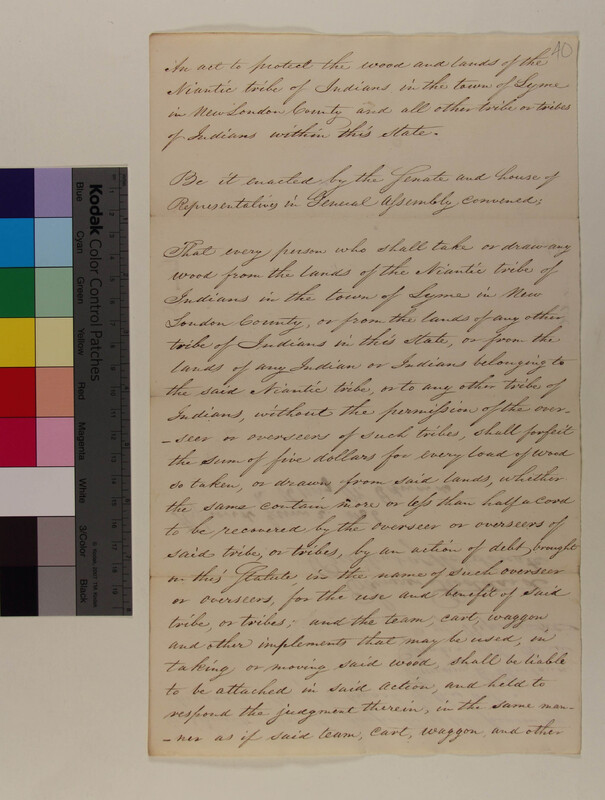 40
An act to protect the wood and lands of the
Niantic tribe of Indians in the town of Lyme
in New London County and all other tribe or tribes
of Indians within this State.
Be it enacted by the Senate and house of
Representatives in General Assembly convened;
That every person who shall take or draw any
wood from the lands of the Niantic tribe of
Indians in the town of Lyme in New
London County, or from the lands of any other
tribe of Indians in this State, or from the
lands of any Indian or Indians belonging to
the said Niantic tribe, or to any other tribe of
Indians, without the permission of the over-
-seer or overseers of such tribes, shall forfeit
the sum of five dollars for every load of wood
so taken, or drawn from said lands, whether
the same contain more or less than half a cord
to be recovered by the overseer or overseers of
said tribe, or tribes, by an action of debt, brought
on this Statute, in the name of such overseer
or overseers, for the use and benefit of said
tribe, or tribes; and the team, cart, waggon
and other implements that may be used, in
taking or moving said wood, shall be liable
to be attached in said action, and held to
respond the judgment therein, in the same man-
-ner as if said team, cart, waggon, and other
Kodak Color Control Patches
Blue
Cyan
Green
Yellow
Red
Magenta
White
3/Color
Black